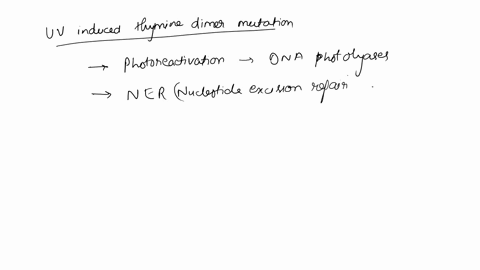 UV induced thymine dimer mutation
→ Photoreactivation → DNA photolyases
→ NER (Nucleotide excision repair